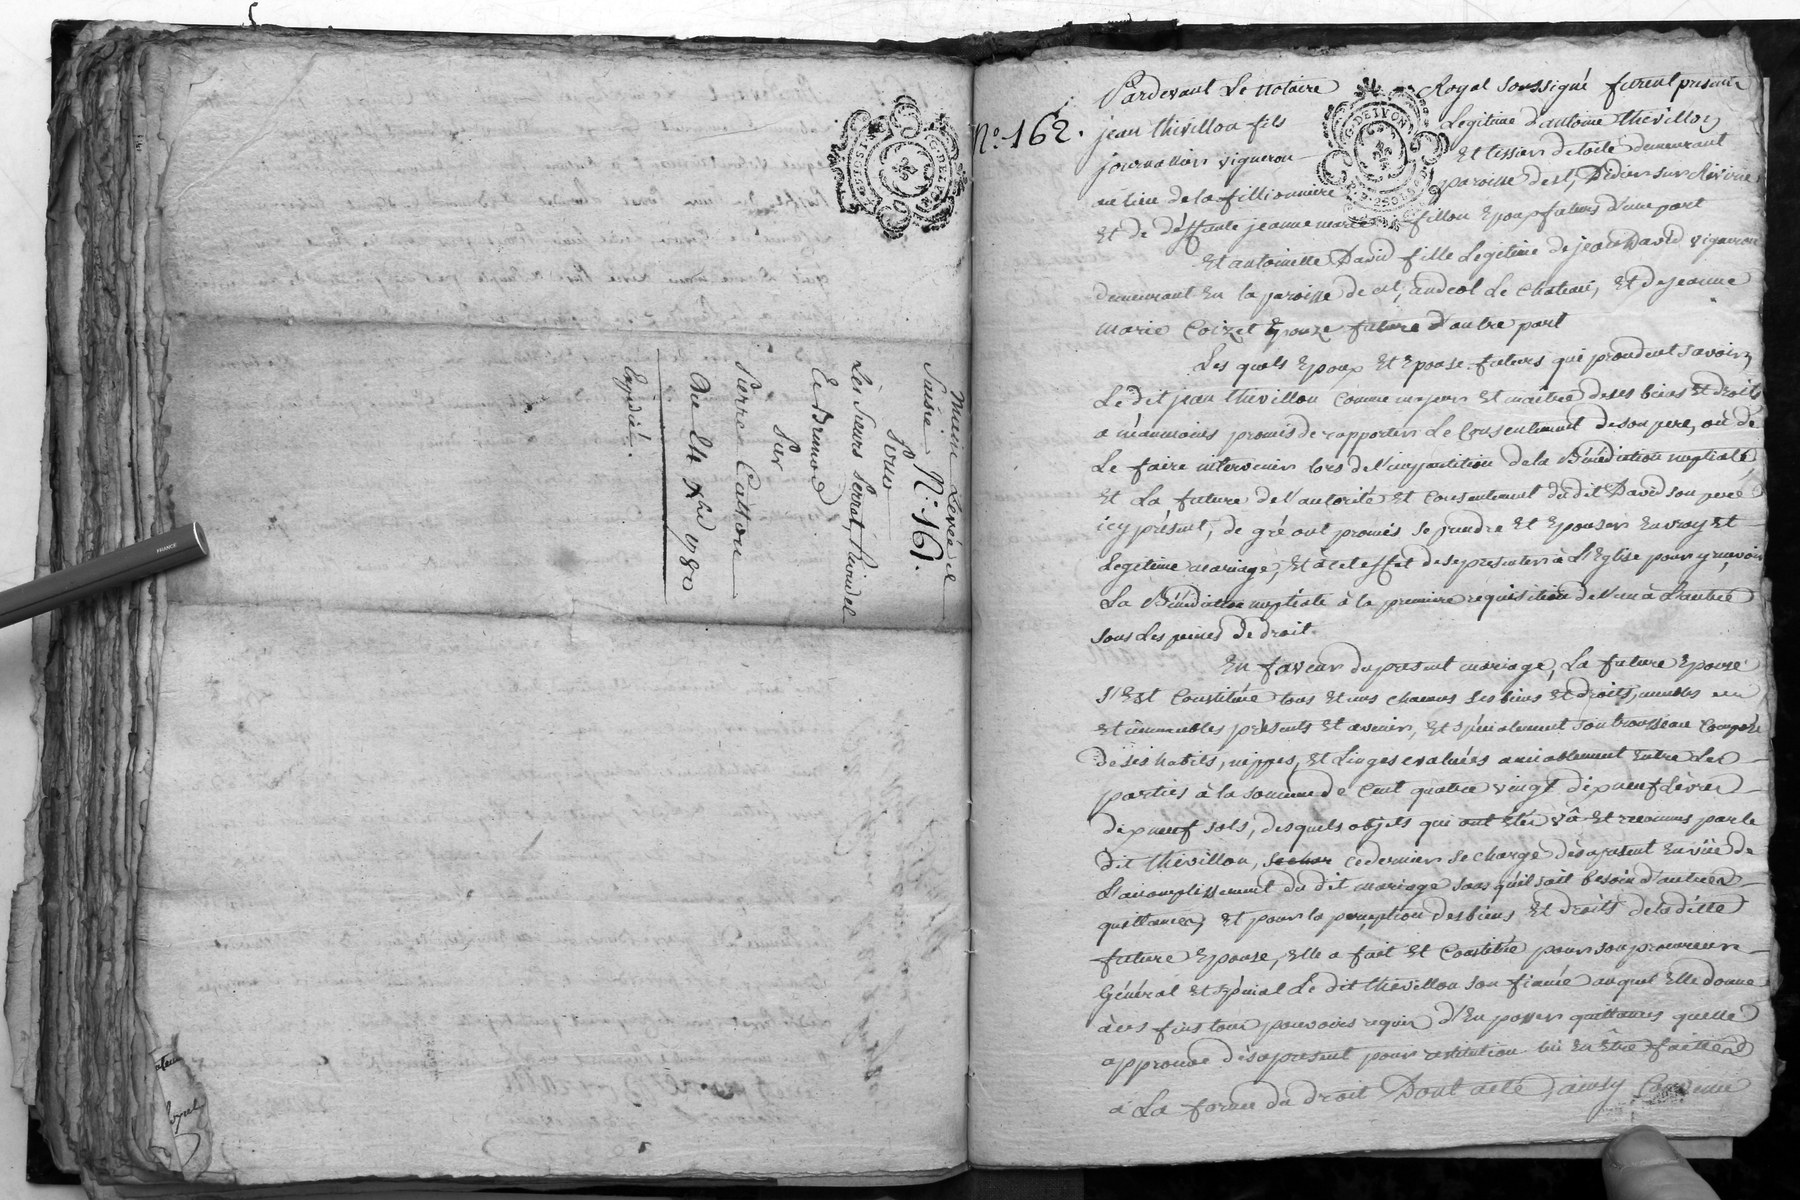 main Levée de
Saisie N.° 161.
Pour
Les Sieurs Perrot, Rivudel
& Brunod
Sur
Pierre Catton
Du 24 xbre 1780
Expédié.
FRANCE
G. DE LYON
N.° 162.
Pardevant Le Notaire Royal soussigné furent présents
jean thevillon fils Legitime d'antoine thevillon
journallier vigneron Et tissier de toile demeurant
au lieu de la fillionniere paroisse de st, Didier sur Riviere
Et de déffunte jeanne marie fillon Epoux futurs d'une part
Et antoinette David fille Legitime de jean David vigneron
demeurant En la paroisse de st, andeol Le Chateau, Et de jeanne
marie Coizet Epouze future d'autre part
Les quels Epoux Et Epouse futurs qui procedent savoir,
Le dit jean thevillon comme majeur Et maitre de ses biens Et droits
a néanmoins promis de rapporter Le Consentement de son pere, où de
Le faire intervenir lors de l'impartition de la Bénédiction nuptiale
Et La future de l'autorité Et Consentement du dit David son peré
icy présent, de gré ont promis se prendre Et Epouser En vray Et
Legitime mariage, Et à cet effet de se presenter à L'Eglise pour y recevoir
La Bénédiction nuptiale à la premiere requisition de l'un à L'autre
sous Les peines de droit.
En faveur du present mariage, La future Epouse
s'Est Constituée tous Et uns chacuns ses biens Et droits, meubles
Et immeubles présents Et avenir, Et spécialement son trousseau Composé
de ses habits, nippes, Et Linges evalués amiablement Entre Les
parties à la somme de Cent quatre vingt dix neuf Livres
dix neuf sols, desquels objets qui ont étés vû Et reconnus par le
dit thevillon, ce dernier se charge dès a present En vüe de
L'accomplissement du dit mariage sans qu'il soit besoin d'autres
quittances, Et pour la perception des biens Et droits de la ditte
future Epouse, Elle a fait Et Constitué pour son procureur
Général Et spécial Le dit thevillon son fiancé auquel Elle donne
à ces fins tous pouvoirs requis d'En passer quittances quelle
approuve dès apresent pour restitution lui En Etre faitte
à La forme du droit Dont acte, ainsy Convenu